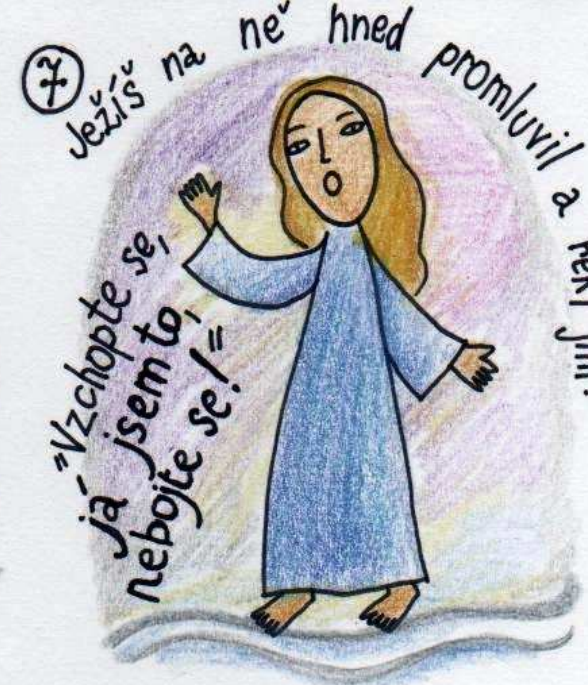 7
Ježíš na ně hned promluvil a řekl jim:
"Vzchopte se,
já jsem to,
nebojte se!"